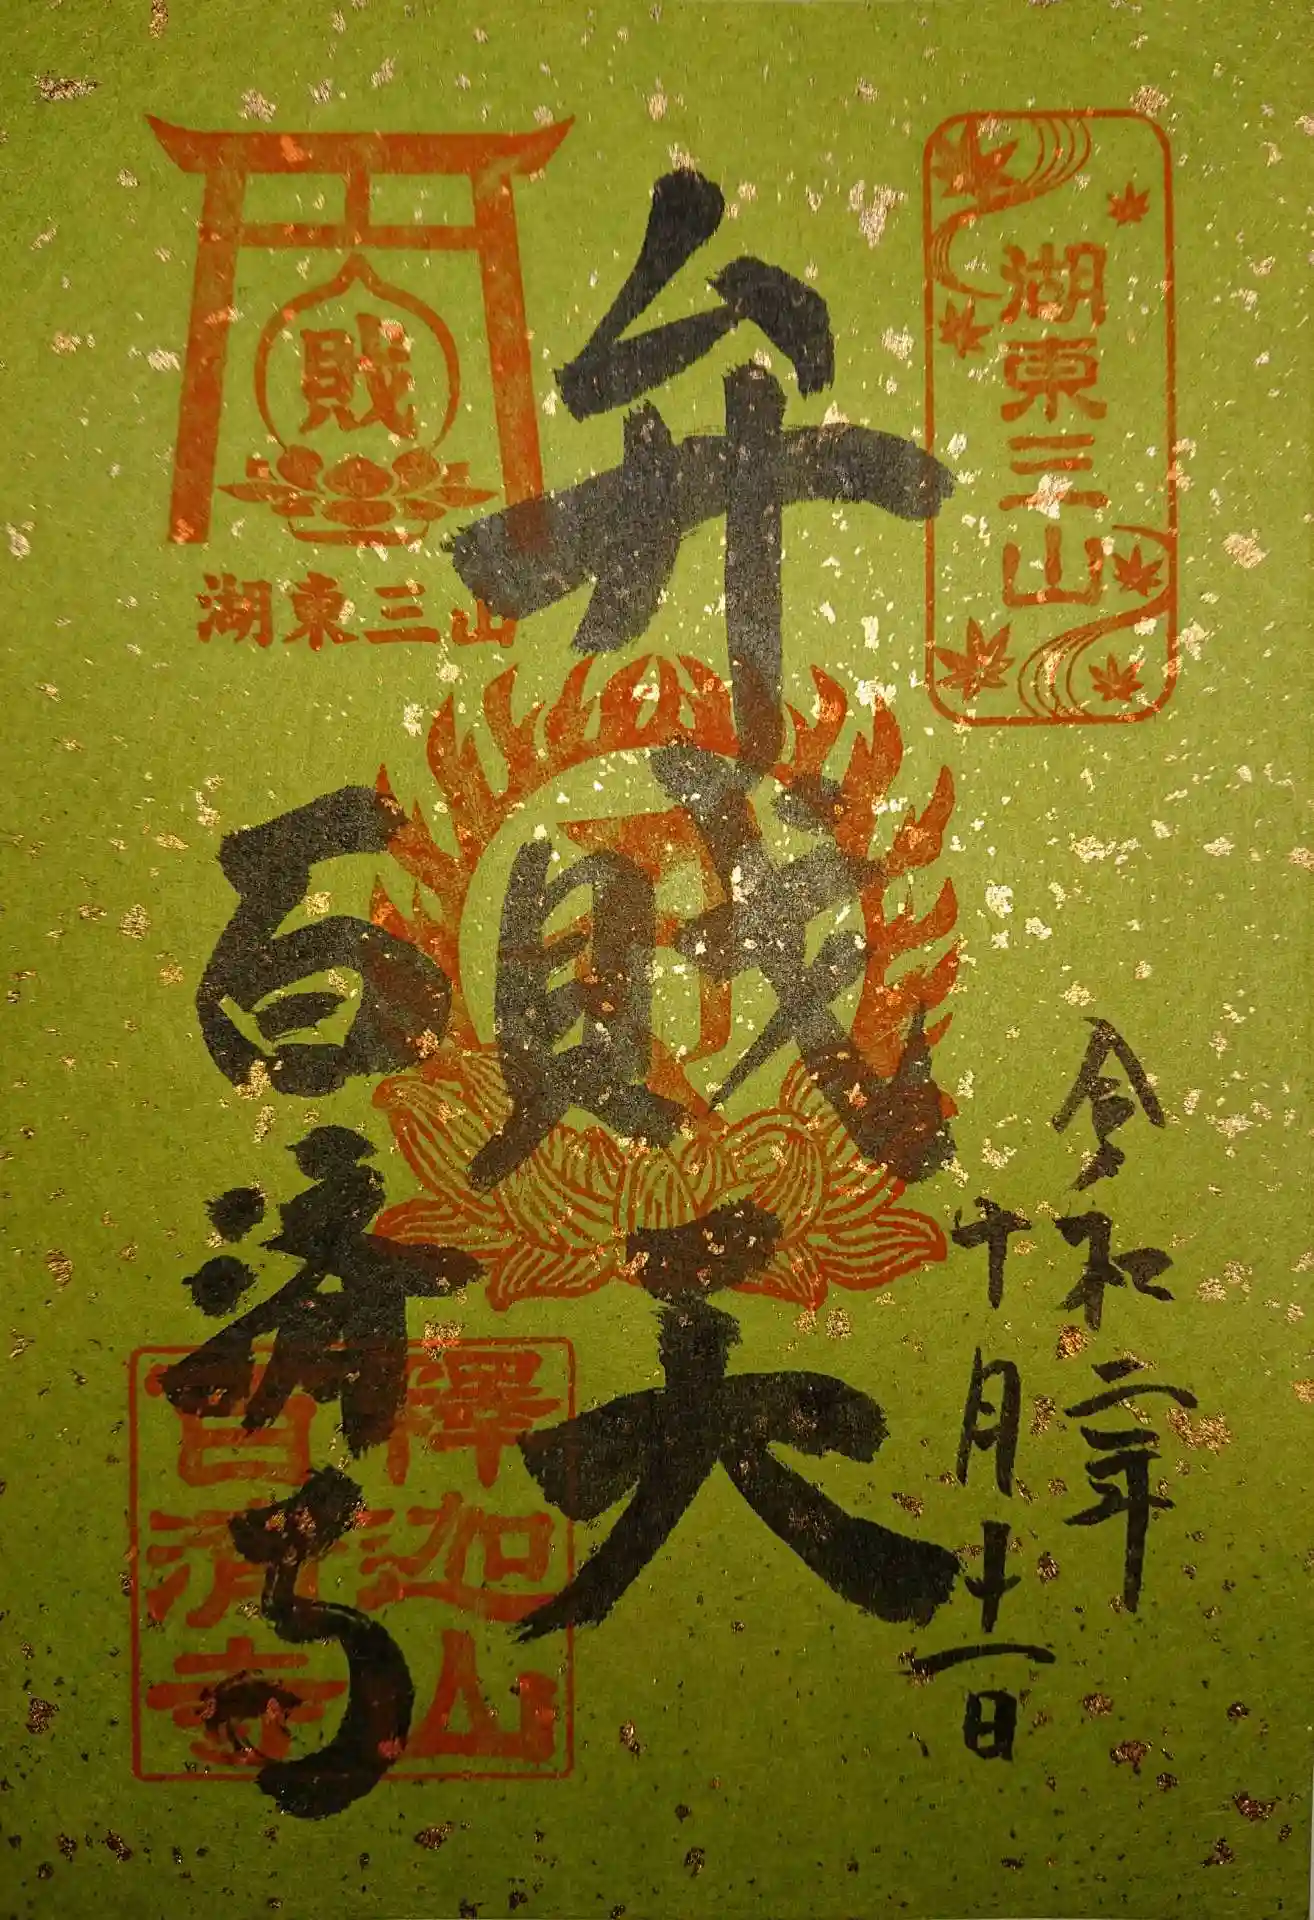 湖東三山
令和二年
十月十一日
弁財天
財
湖東三山
百済寺
釋迦山
百濟寺